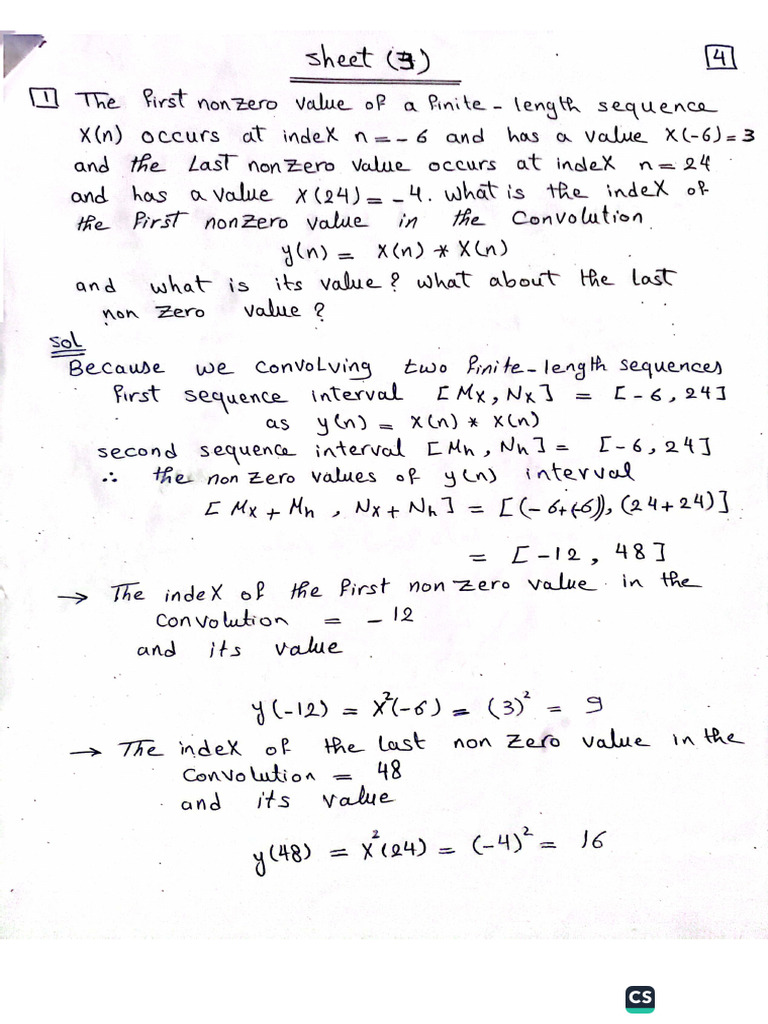 Sheet (3)
4
1 The first nonzero value of a finite-length sequence
X(n) occurs at index n=-6 and has a value X(-6)=3
and the Last nonzero value occurs at index n=24
and has a value X(24)=-4. what is the index of
the first nonzero value in the Convolution
y(n) = X(n) * X(n)
and what is its value? what about the last
non zero value?
Sol
Because we convolving two finite-length sequences
first sequence interval [Mx, Nx] = [-6, 24]
as y(n) = X(n) * X(n)
second sequence interval [Mh, Nh] = [-6, 24]
∴ the non zero values of y(n) interval
[Mx + Mh , Nx + Nh] = [(-6+(-6)), (24+24)]
= [-12, 48]
→ The index of the first non zero value in the
Convolution = -12
and its value
y(-12) = X²(-6) = (3)² = 9
→ The index of the last non zero value in the
Convolution = 48
and its value
y(48) = X²(24) = (-4)² = 16
CS